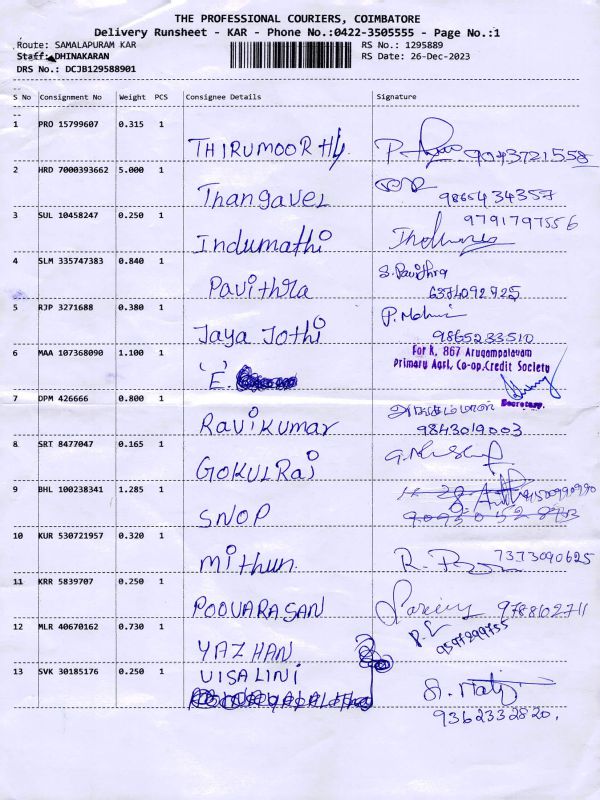 THE PROFESSIONAL COURIERS, COIMBATORE
Delivery Runsheet - KAR - Phone No.:0422-3505555 - Page No.:1
Route: SAMALAPURAM KAR RS No.: 1295889
Staff: DHINAKARAN RS Date: 26-Dec-2023
DRS No.: DCJB129588901
S No Consignment No Weight PCS Consignee Details Signature
--
1 PRO 15799607 0.315 1
THIRUMOORTHY 9043721558
2 HRD 7000393662 5.000 1
Thangavel 9865434357
3 SUL 10458247 0.250 1 9791797556
Indumathi
4 SLM 335747383 0.840 1 S. Pavithra
Pavithra 6374092925
5 RJP 3271688 0.380 1
Jaya Jothi 9865233510
6 MAA 107368090 1.100 1 For K. 867 Arugampalayam
Primary Agrl, Co-op.Credit Society
'E.
Secretary.
7 DPM 426666 0.800 1
Ravikumar 9843019003
8 SRT 8477047 0.165 1
GOKULRaj
9 BHL 100238341 1.285 1
SNOP
10 KUR 530721957 0.320 1 7373090625
Mithun.
11 KRR 5839707 0.250 1
POOVARASAN 9788102711
12 MLR 40670162 0.730 1 9597299755
YAZHAN
13 SVK 30185176 0.250 1
VISALINI
9362332820.